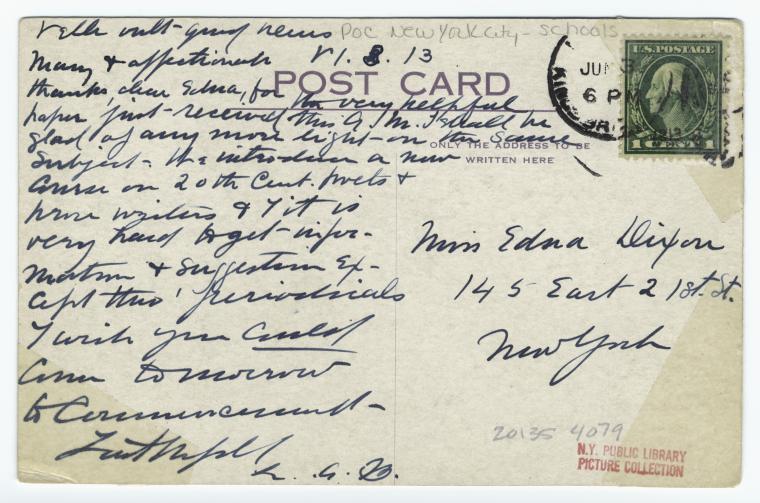 POC New York City - Schools
VI. 8. 13
Many & affectionate
thanks, dear Edna, for the very helpful
paper just received this A.M. I shall be
glad of any more light on the same
subject. We introduce a new
Course on 20th Cent. poets &
prose writers & it is
very hard to get infor-
mation & suggestion ex-
cept thro' periodicals
I wish you could
come tomorrow
to Commencement -
POST CARD
ONLY THE ADDRESS TO BE
WRITTEN HERE
JUN
6 PM
U.S. POSTAGE
1
Miss Edna Dixon
145 East 21st. St.
New York
20135 4079
N.Y. PUBLIC LIBRARY
PICTURE COLLECTION